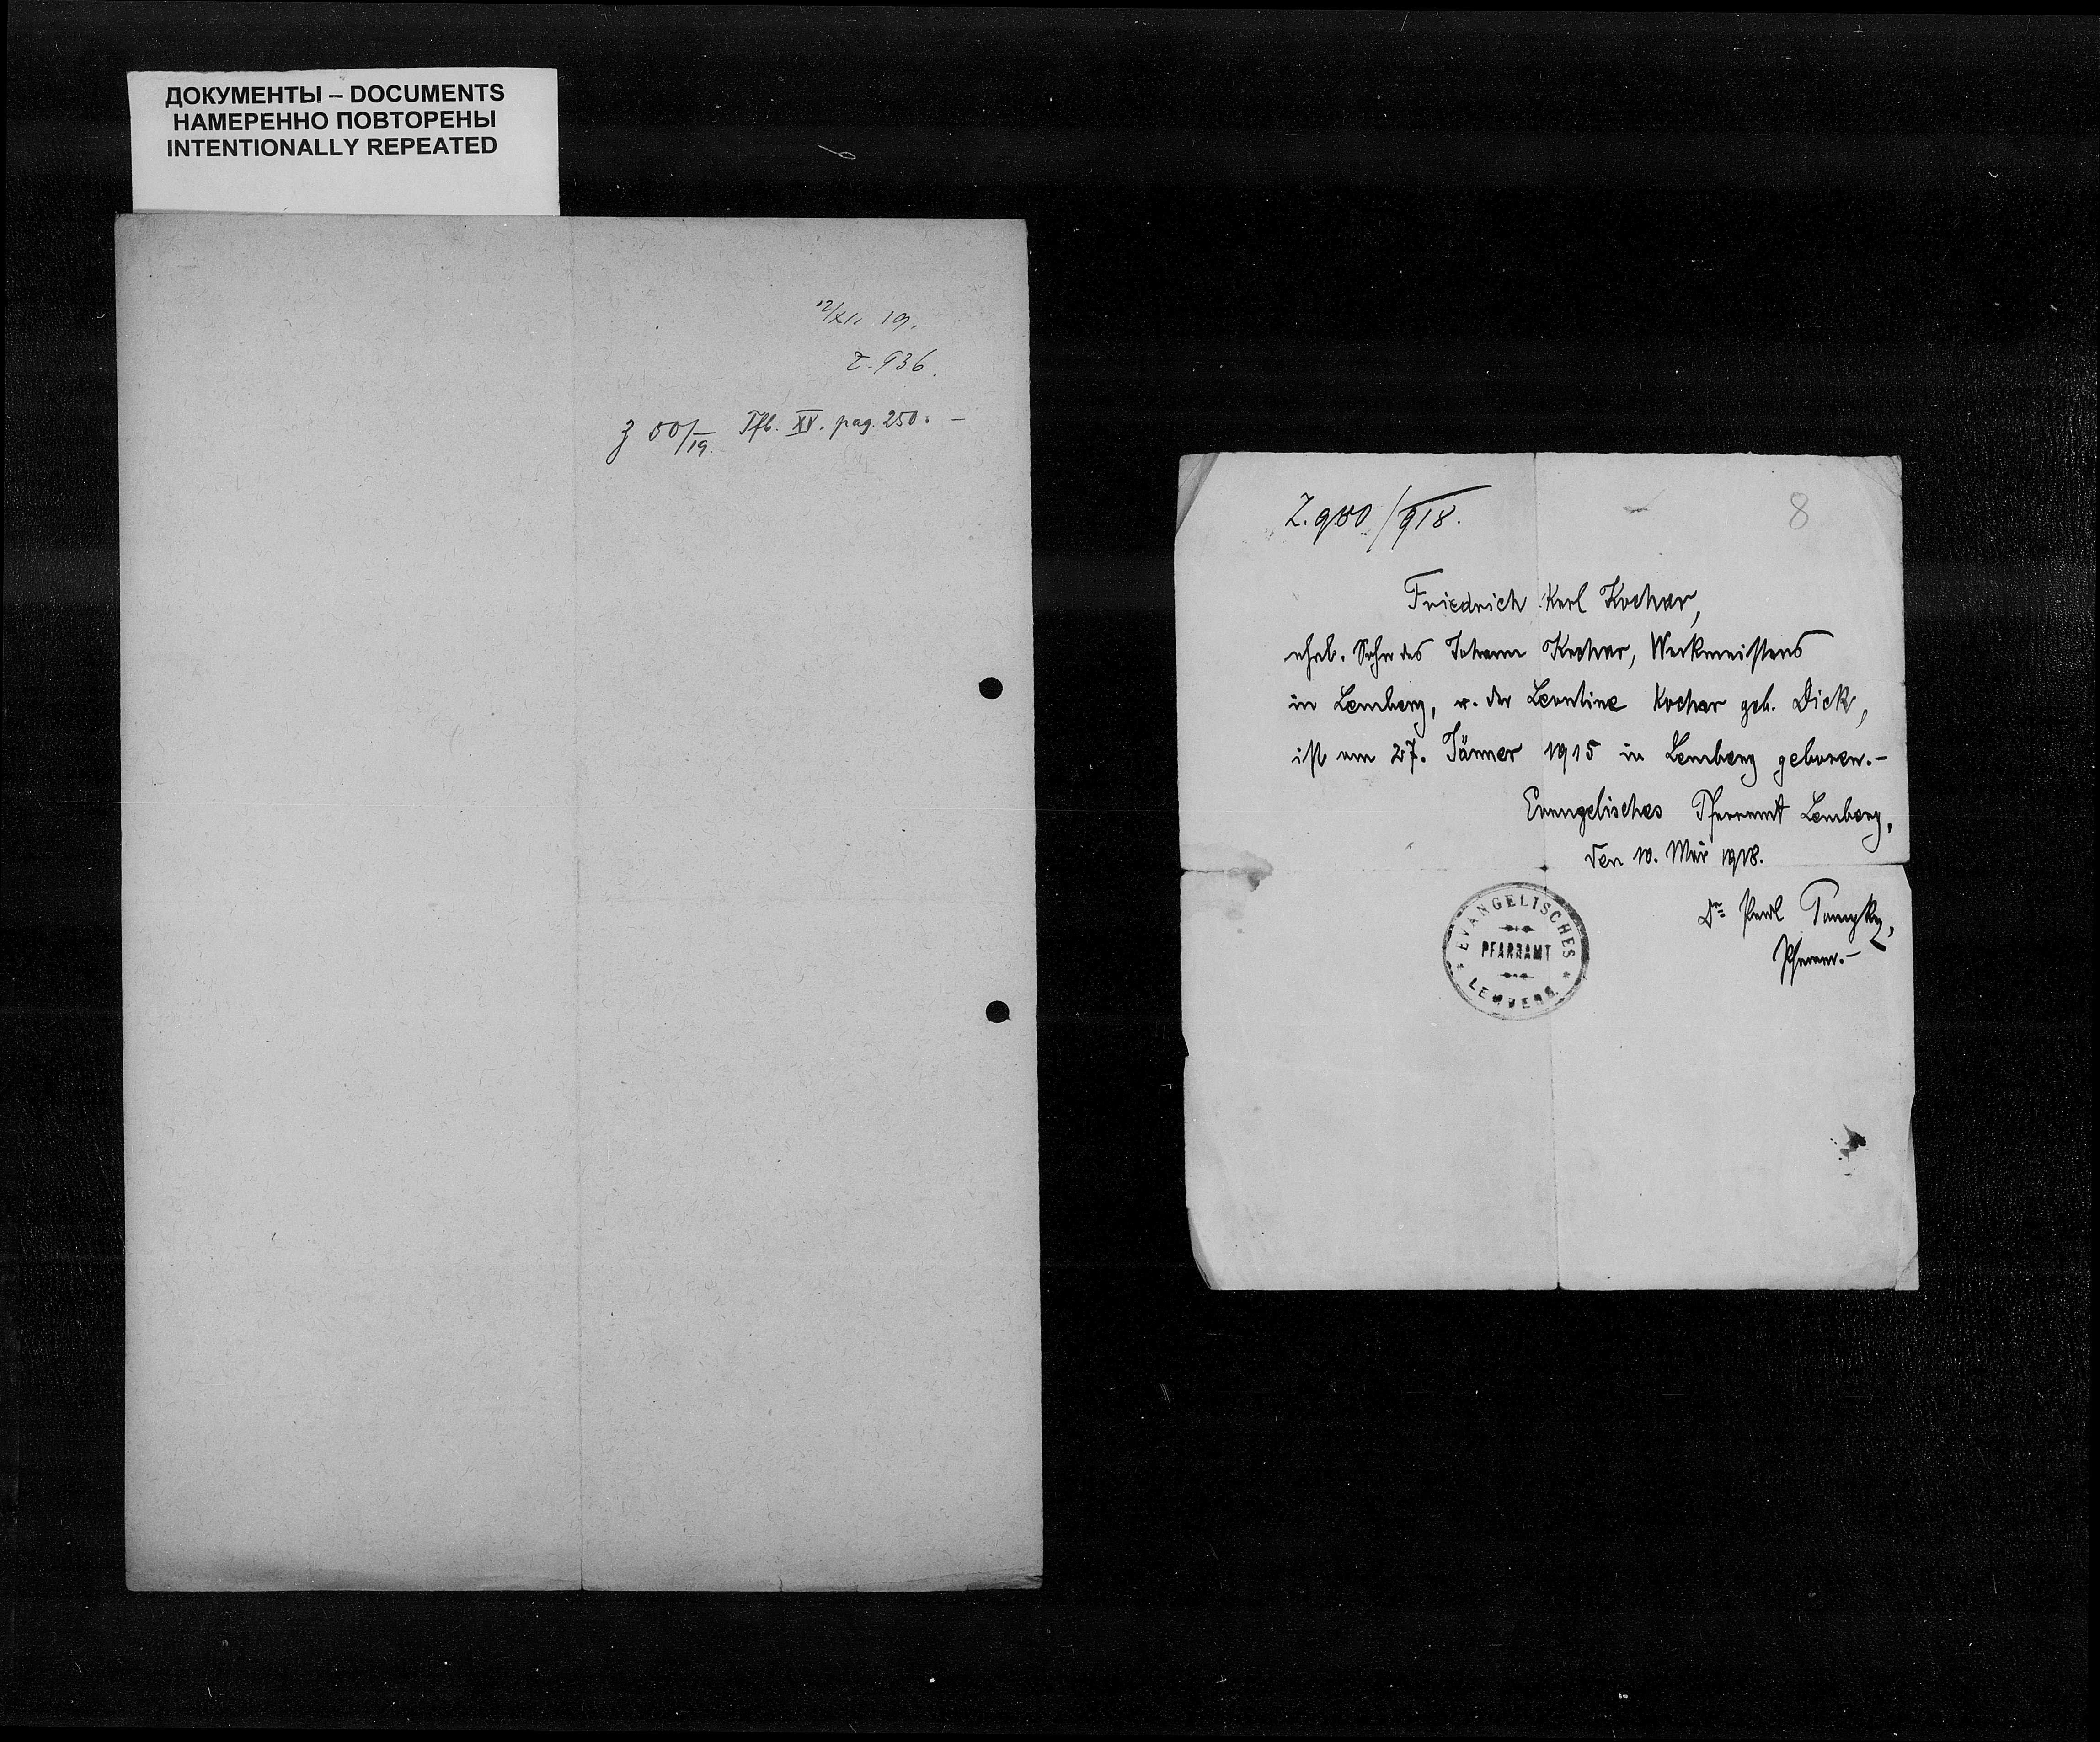 ДОКУМЕНТЫ – DOCUMENTS
НАМЕРЕННО ПОВТОРЕНЫ
INTENTIONALLY REPEATED
12/XII. 19.
Z. 936.
Z 50/19. Tfb. XV. pag. 250. –
Z. 950/918.
8
Friedrich Karl Kochar,
ehel. Sohn des Johann Kochar, Werkmeisters
in Lemberg, u. der Leontine Kochar geb. Dick,
ist am 27. Jänner 1915 in Lemberg geboren.–
Evangelisches Pfarramt Lemberg,
den 10. Mai 1918.
EVANGELISCHES
PFARRAMT
LEMBERG
Dr. Paul
Pfarrer.–